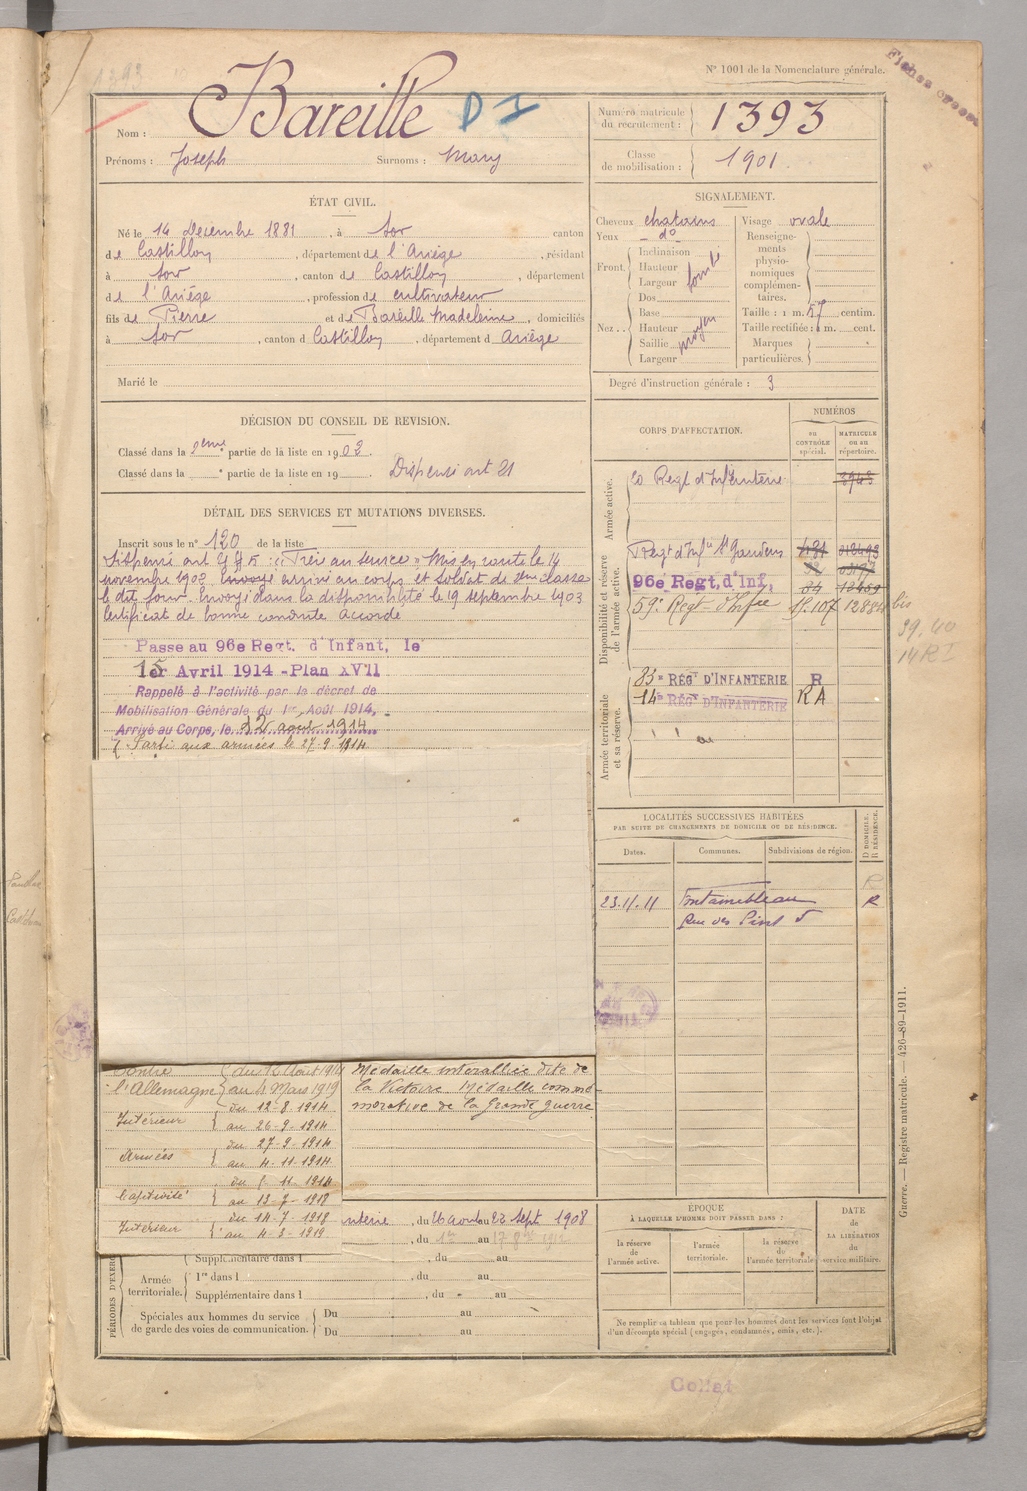 N° 1001 de la Nomenclature générale.
1393
Nom : Bareille D I
Prénoms : Joseph Surnoms : Mary
Numéro matricule du recrutement : 1393
Classe de mobilisation : 1901.
ÉTAT CIVIL.
Né le 14 Décembre 1881, à Sor canton
de Castillon, département de l'Ariège, résidant
à Sor, canton de Castillon, département
de l'Ariège, profession de cultivateur
fils de Pierre et de Bareille Madeleine, domiciliés
à Sor, canton d Castillon, département d Ariège
Marié le
SIGNALEMENT.
Cheveux chatains
Yeux d°
Front. Inclinaison
Hauteur
Largeur
Nez.. Dos
Base
Hauteur moyen
Saillie
Largeur
Visage ovale
Renseignements physionomiques complémentaires.
Taille : 1 m. 57 centim.
Taille rectifiée : 1 m. cent.
Marques particulières.
Degré d'instruction générale : 3
DÉCISION DU CONSEIL DE REVISION.
Classé dans la 2eme partie de la liste en 1902.
Classé dans la e partie de la liste en 19 . Dispensé art 21
CORPS D'AFFECTATION.
NUMÉROS
au CONTRÔLE spécial.
MATRICULE ou au répertoire.
Armée active.
20 Regt d'Infanterie 3943
Disponibilité et réserve de l'armée active.
Regt d'Infie St Gaudens
96e Regt. d'Inf.
59e Regt d'Infie 12884 bis
39.40
14 R I
Armée territoriale et sa réserve.
83e RÉGT D'INFANTERIE R
14e RÉGT D'INFANTERIE R A
DÉTAIL DES SERVICES ET MUTATIONS DIVERSES.
Inscrit sous le n° 120 de la liste
Dispensé art 21 § 5 : "Frère au service" Mis en route le 14
novembre 1902 Envoyé arrivé au corps et soldat de 2eme classe
le dit jour. Envoyé dans la disponibilité le 19 septembre 1903
Certificat de bonne conduite accordé
Passe au 96e Regt. d'Infant, le
1er Avril 1914 - Plan XVII
Rappelé à l'activité par le décret de
Mobilisation Générale du 1er Août 1914,
Arrivé au Corps, le 12 août 1914
Parti aux armées le 27-9-1914
LOCALITÉS SUCCESSIVES HABITÉES
PAR SUITE DE CHANGEMENTS DE DOMICILE OU DE RÉSIDENCE.
Dates. Communes. Subdivisions de région. D DOMICILE, R RÉSIDENCE.
R
23.11.11 Fontainebleau R
Contre l'Allemagne { du 12 Août 1914
au 4 Mars 1919
Intérieur { du 12-8-1914
au 26-9-1914
Armées { du 27-9-1914
au 4-11-1914
Captivité { du 5-11-1914
au 13-7-1918
Intérieur { du 14-7-1918
au 4-3-1919
Médaille interalliée dite de
la Victoire. Médaille commé-
morative de la Grande guerre
nterie, du 26 août au 22 Sept 1908
, du 1er au
PÉRIODES D'EXER
Supplémentaire dans l , du au
Armée territoriale. 1re dans l , du au
Supplémentaire dans l , du au
Spéciales aux hommes du service de garde des voies de communication. Du au
Du au
ÉPOQUE
À LAQUELLE L'HOMME DOIT PASSER DANS :
la réserve de l'armée active.
l'armée territoriale.
la réserve de l'armée territoriale
DATE DE LA LIBÉRATION du service militaire.
Ne remplir ce tableau que pour les hommes dont les services font l'objet
d'un décompte spécial (engagés, condamnés, omis, etc.).
Guerre. — Registre matricule. — 426-89-1911.